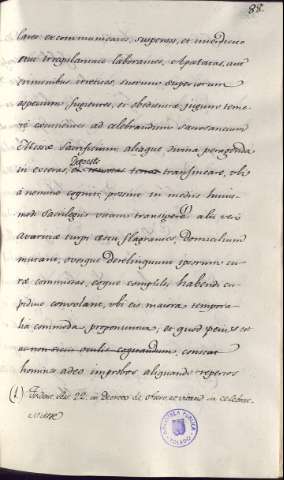 88.
lares excommunicatos, suspensos, et interdictos
aut irregularitate laborantes, Apostatas, aut
criminibus irretitos, suorum superiorum
aspectum fugientes, et obedientiae jugum teme-
re contemnentes ad celebrandum sacrosanctum
Missae sacrificium aliaque divina peragenda
in exteras, transfineare, ubi
a nemine cogniti, possint in medio huius-
modi sacrilegio vitam transigere (1) alii vero
avaritiae turpi aestu flagrantes, Domicilium
mutant, ovesque derelinquunt ipsorum cu-
rae commissas, eoque completis habendi cu-
pidine convolant, ubi eis maiora tempora-
lia commoda proponuntur, et quod peius est
ac non sicco oculis cogitandum, constat
homines adeo improbos aliquando repertos
(1) Tridene. sess. 22. in Decreto de observ. et vitand. in celebrat.
Missae
BIBLIOTECA PUBLICA
TOLEDO